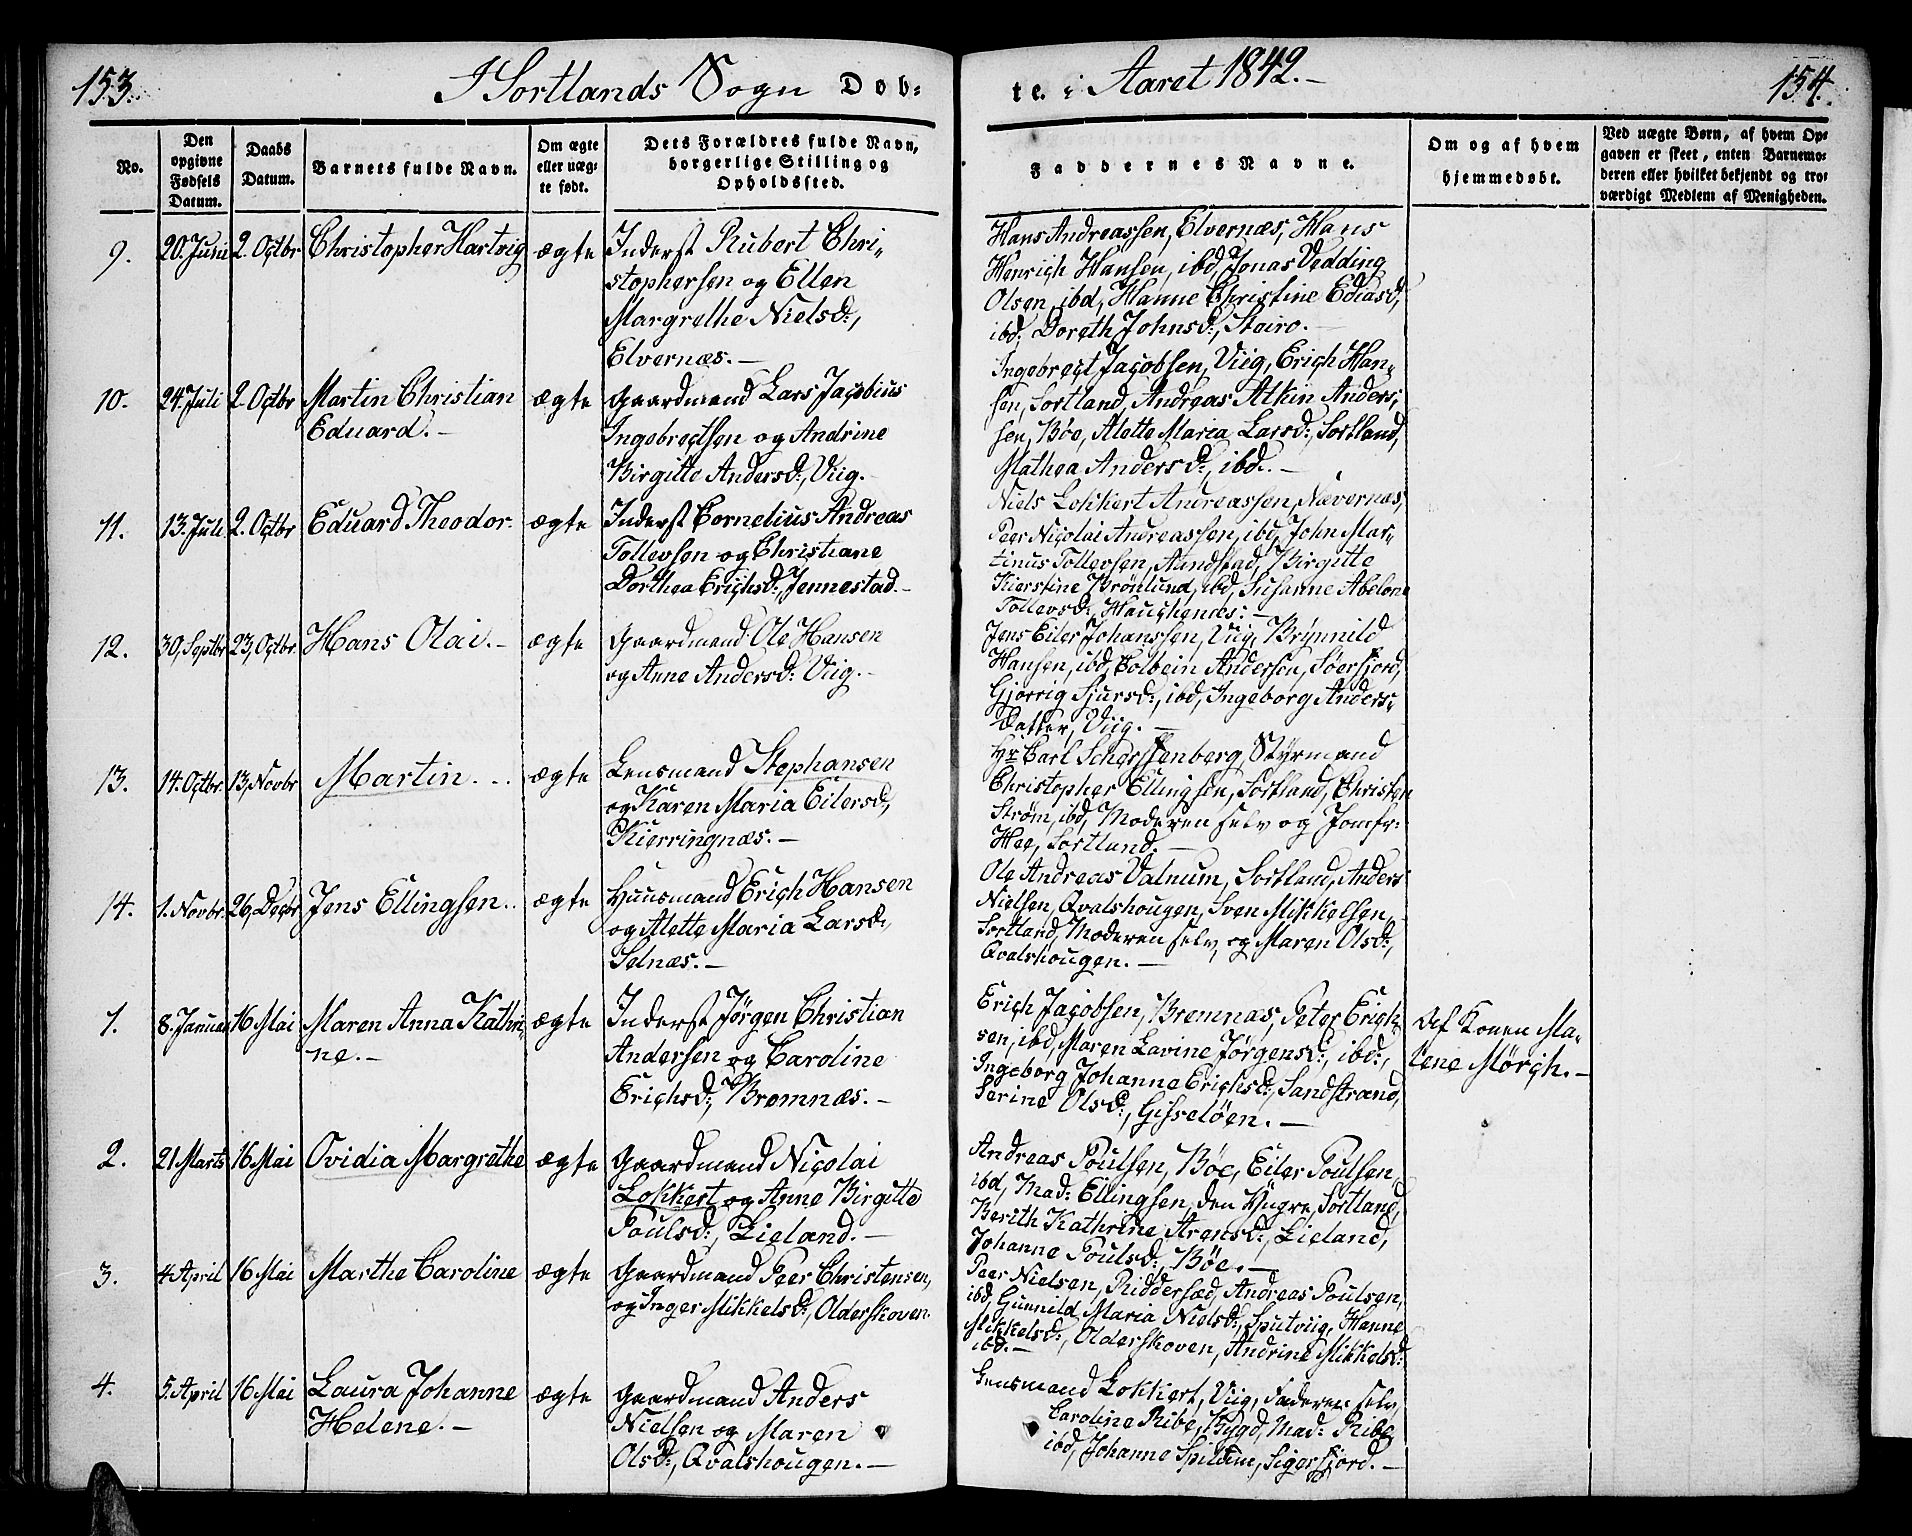 153.
I Sortlands Sogn Døb-
te i Aaret 1842.-
154.
No.
Den opgivne Fødsels Datum.
Daabs Datum.
Barnets fulde Navn.
Om ægte eller uægte født.
Dets Forældres fulde Navn, borgerlige Stilling og Opholdssted.
Faddernes Navne.
Om og af hvem hjemmedøbt.
Ved uægte Børn, af hvem Op-
gaven er skeet, enten Barnemo-
deren eller hvilket bekjendt og tro-
værdigt Medlem af Menigheden.
9. 20 Juni 2. Octbr Christopher Hartvig ægte
Inderst Rubert Chri-
stophersen og Ellen
Margrethe Nielsd:,
Elvernæs.-
Hans Andreassen, Elvernæs, Hans
Henrich Hansen, ibd, Jonas Vedding
Olsen, ibd, Hanne Christine Ediasd,
ibd, Doreth Johnsd:, Stoiro.-
10. 24. Juli 2. Octbr Martin Christian
Eduard.-
ægte
Gaardmand Lars Jacobius
Ingebregtsen og Andrine
Birgitte Andersd:, Viig.-
Ingebregt Jacobsen, Viig, Erich Han-
sen, Sortland, Andreas Atkin Anders-
sen, Bøe, Alette Maria Larsd:, Sortland,
Mathea Andersd:, ibd.-
11. 13. Juli 2. Octbr Eduard Theodor. ægte
Inderst Cornelius Andreas
Tollevsen og Christiane
Dorthea Erichsd:, Jennestad.-
Niels Lokkert Andreassen, Nævernæs,
Peer Nicolai Andreassen, ibd, John Mar-
tinus Tollevsen, Aundstad, Birgitte
Kierstine Brønlund, ibd, Susanne Abelone
Tollevsd:, Hauchenæs:-
12. 30, Septbr 23, Octbr. Hans Olai.- ægte
Gaardmand Ole Hansen
og Anne Andersd: Viig.-
Jens Eiler Johanssen, Viig, Brynnild
Hansen, ibd, Colbein Andersen, Søerfjord,
Gjørrig Sjursd:, ibd, Ingeborg Anders-
datter, Viig.-
13. 14. Octbr. 13, Novbr Martin.- ægte
Lensmand Stephansen
og Karen Maria Eilersd,
Kierringnæs.-
Hr Carl Schørssenberg, Styrmand
Christopher Ellingsen, Sortland, Christen
Strøm, ibd, Moderen selv og Jomfr:
Hee, Sortland.-
14. 1. Novbr. 26, Decbr Jens Ellingsen.. ægte
Huusmand Erich Hansen
og Alette Maria Larsd:,
Selnæs.-
Ole Andreas Valnum, Sortland, Anders
Nielsen, Qvalshougen, Sven Mikkelsen,
Sortland, Moderen selv, og Maren Olsd:,
Qvalshougen.-
1. 8. Januar 16 Mai Maren Anna Kathri-
ne.-
ægte
Inderst Jørgen Christian
Andersen og Caroline
Erichsd:, Bremnæs.-
Erich Jacobsen, Bremnæs, Peter Erich-
sen, ibd, Maren Lavine Jørgensd:, ibd:,
Ingeborg Johanne Erichsd:, Sandstrand,
Serine Olsd:, Gisseløen.-
Af Konen Ma-
lene Mørch.-
2. 21 Marts 16 Mai Ovidia Margrethe ægte
Gaardmand Nicolai
Lokkert og Anne Birgitte
Poulsd:, Lieland.-
Andreas Poulsen, Bøe, Eiler Poulsen,
ibd, Mad: Ellingsen, den Yngre, Sortland,
Berith Kathrine Arensd:, Lieland,
Johanne Poulsd:, Bøe.-
3. 4 April 16 Mai Marthe Caroline ægte
Gaardmand Peer Christensen,
og Inger Mikkelsd:, Olderskoven.
Peer Nielsen, Riddersæd, Andreas Poulsen,
ibd, Gunnild Maria Nielsd:, Sputviig, Hanne
Mikkelsd:, Olderskoven, Andrine Mikkelsd:
ibd.-
4. 5. April 16 Mai Laura Johanne
Helene.-
ægte
Gaardmand Anders
Nielsen og Maren
Olsd:, Qvalshougen.-
Lensmand Lokkert, Viig, Faderen selv,
Caroline Ribe, Bygd, Mad: Ribe
ibd, Johanne Spilum, Sigerfjord.-